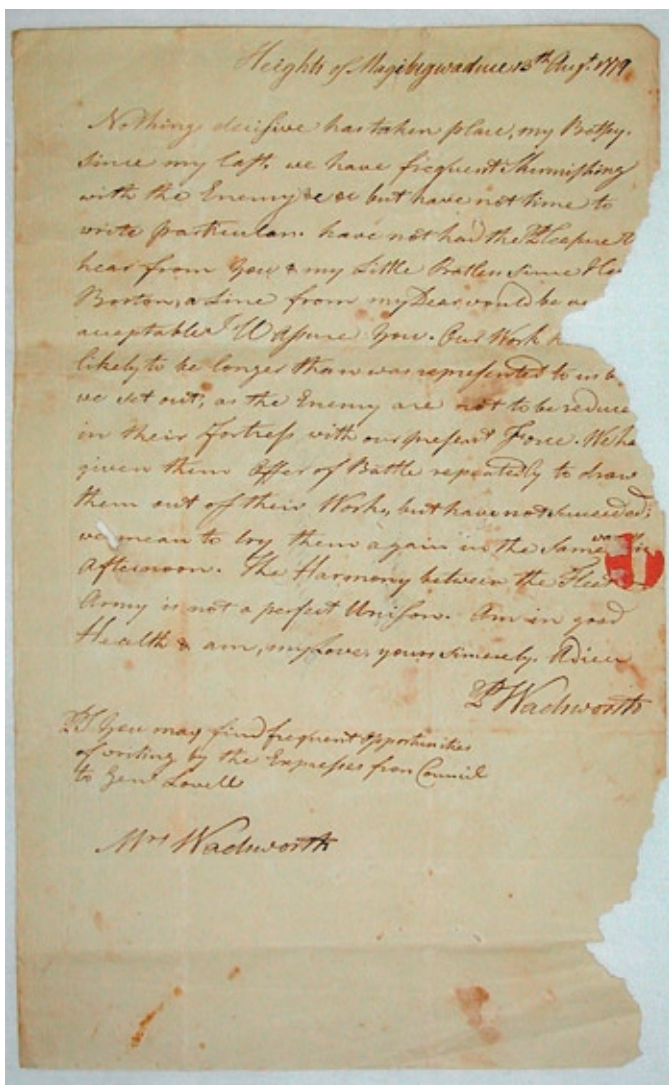 Heights of Magibigwaduce 13th Augt. 1779
Nothing decisive has taken place, my Betsy.
since my last. we have frequent Skirmishing
with the Enemy &c &c but have not time to
write particulars. have not had the Pleasure to
hear from You & my Little Bratlers since I le
Boston, a Line from my Dear, would be
acceptable I'll assure You. Our Work
likely to be longer than was represented to us b
we set out; as the Enemy are not to be reduce
in their Fortress with our present Force. We ha
given them Offer of Battle repeatedly to draw
them out of their Works, but have not succeeded;
we mean to try them again in the same way
Afternoon. The Harmony between the Fleet
Army is not a perfect Unison. Am in good
Health & am, my Love, yours sincerely. Adieu
P Wadsworth
PS You may find frequent opportunities
of writing by the Expresses from Council
to Genl Lovell
Mrs Wadsworth